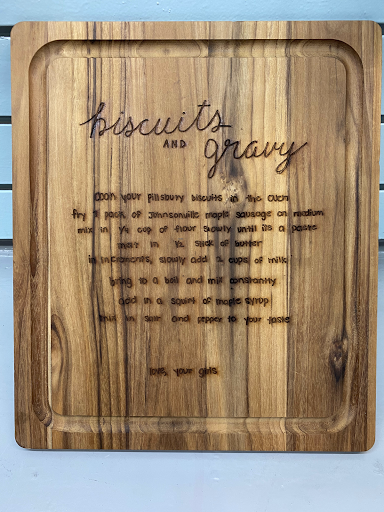 biscuits
AND
gravy
cook your pillsbury biscuits in the oven
fry 1 pack of Johnsonville maple sausage on medium
mix in ¼ cup of flour slowly until its a paste
melt in ½ stick of butter
in increments, slowly add 2 cups of milk
bring to a boil and mix constantly
add in a squirt of maple syrup
mix in salt and pepper to your taste
love, your girls